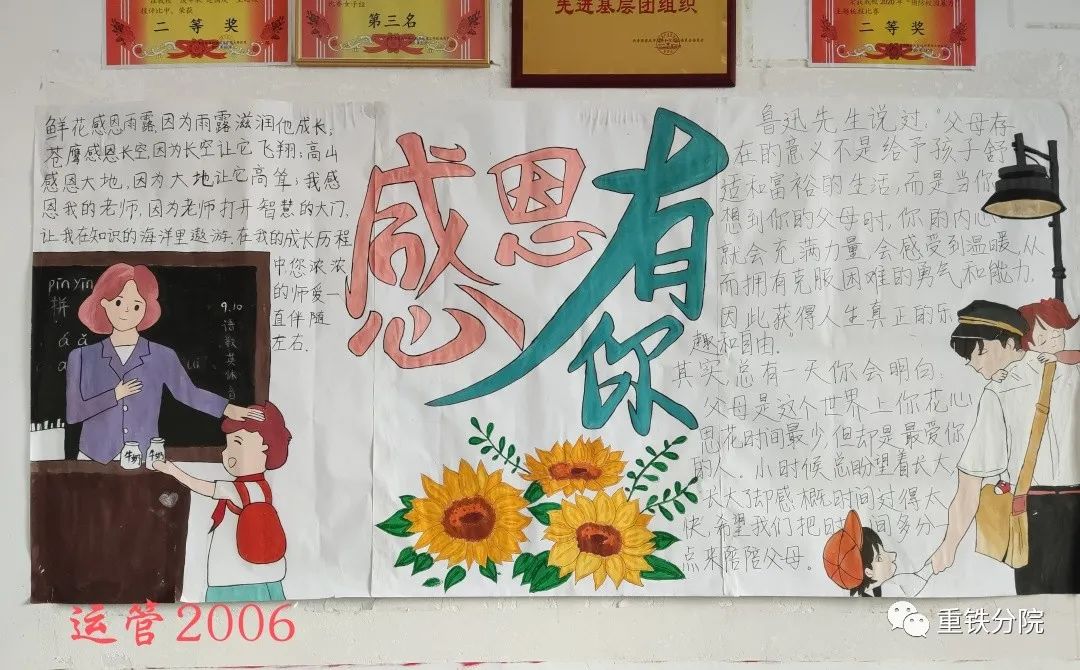 二等奖
第三名
先进基层团组织
二等奖
鲜花感恩雨露,因为雨露滋润他成长;
苍鹰感恩长空,因为长空让它飞翔;高山
感恩大地,因为大地让它高耸;我感
恩我的老师,因为老师打开智慧的大门,
让我在知识的海洋里遨游.在我的成长历程
中您浓浓
的师爱一
直伴随
左右.
pīn yīn
拼
á ǎ
9.10
语
数
英
体
音
牛奶
牛奶
感恩有你
鲁迅先生说过:"父母存
在的意义不是给予孩子舒
适和富裕的生活,而是当你
想到你的父母时,你的内心
就会充满力量,会感受到温暖,从
而拥有克服困难的勇气和能力,
因此获得人生真正的乐
趣和自由."
其实,总有一天你会明白:
父母是这个世界上你花心
思花时间最少,但却是最爱你
的人。小时候总盼望着长大,
长大却感概时间过得太
快,希望我们把时间多分一
点来陪陪父母。
运管2006
重铁分院